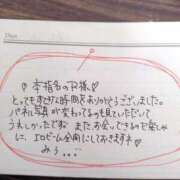 Date
♡ 本指名のお客様 ♡
とってもすてきな時間をありがとうございました。
パネル写真が変わってるのも見ていただいて
うれしかったですね また、お会いできるのを楽しみ
に、エロビーム全開にしておきますネ♡
みう...